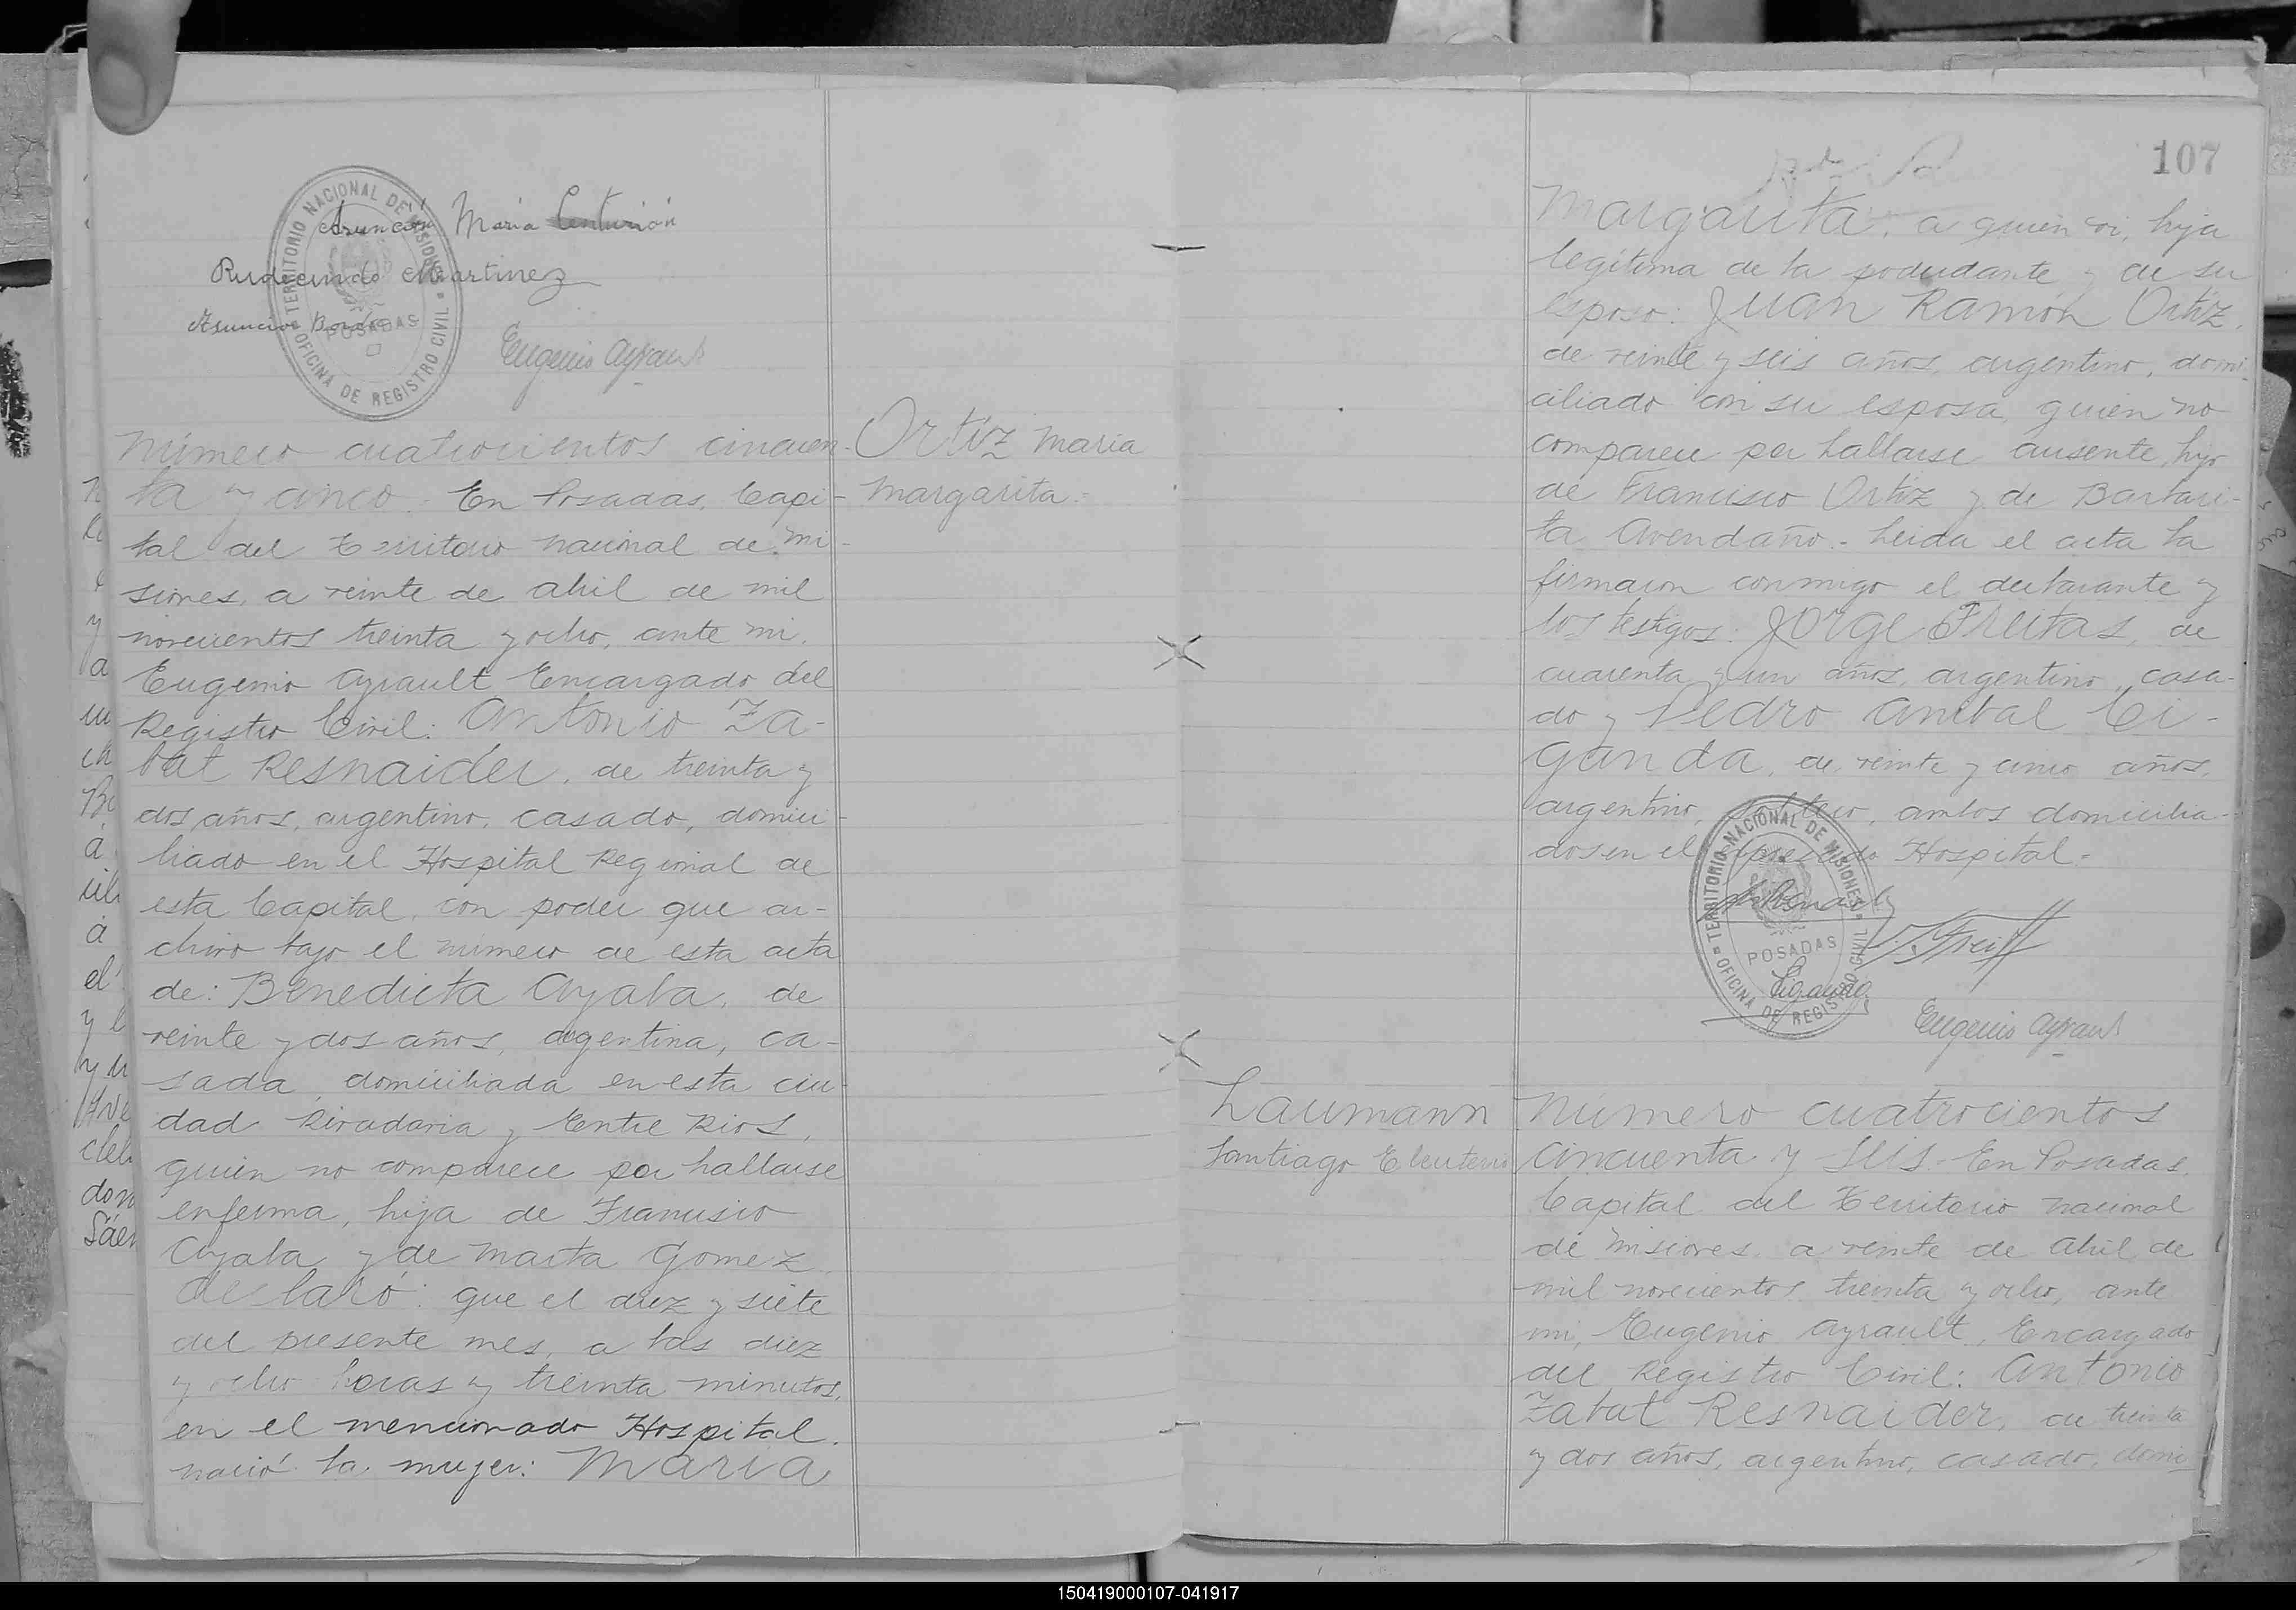 Asunción María Centurión
Rudecindo Martinez
Asunción
Eugenio Ayrault
TERRITORIO NACIONAL DE MISIONES
POSADAS
OFICINA DE REGISTRO CIVIL
Ortiz Maria
Margarita.
Número cuatrocientos cincuen-
ta y cinco. En Posadas, Capi-
tal del Territorio nacional de Mi-
siones, a veinte de abril de mil
novecientos treinta y ocho, ante mi,
Eugenio Ayrault Encargado del
Registro Civil: Antonio Za-
bat Resnaider, de treinta y
dos años, argentino, casado, domici-
liado en el Hospital Regional de
esta Capital, con poder que ar-
chivo bajo el número de esta acta
de: Benedicta Ayala, de
veinte y dos años, argentina, ca-
sada, domiciliada en esta ciu-
dad Rivadavia y Entre Rios,
quien no comparece por hallarse
enferma, hija de Francisco
Ayala y de Marta Gomez,
declaró: que el diez y siete
del presente mes, a las diez
y ocho horas y treinta minutos,
en el mencionado Hospital,
nació la mujer: Maria
107
Margarita, a quien vi, hija
legítima de la poderdante y de su
esposo: Juan Ramón Ortiz,
de veinte y seis años, argentino, domi-
ciliado con su esposa, quien no
comparece por hallarse ausente, hijo
de Francisco Ortiz y de Barbari-
ta Avendaño.- Leida el acta la
firmaron conmigo el declarante y
los testigos: Jorge Freitas, de
cuarenta y un años, argentino, casa-
do y Pedro Anibal Ci-
ganda, de veinte y cinco años,
argentino, soltero, ambos domicilia-
dos en el expresado Hospital.-
TERRITORIO NACIONAL DE MISIONES
POSADAS
OFICINA DE REGISTRO CIVIL
Ciganda
Eugenio Ayrault
Laumann
Santiago Eleuterio
Número cuatrocientos
cincuenta y seis.- En Posadas,
Capital del Territorio nacional
de Misiones, a veinte de abril de
mil novecientos treinta y ocho, ante
mi, Eugenio Ayrault, Encargado
del Registro Civil: Antonio
Zabat Resnaider, de treinta
y dos años, argentino, casado, domi-
150419000107-041917